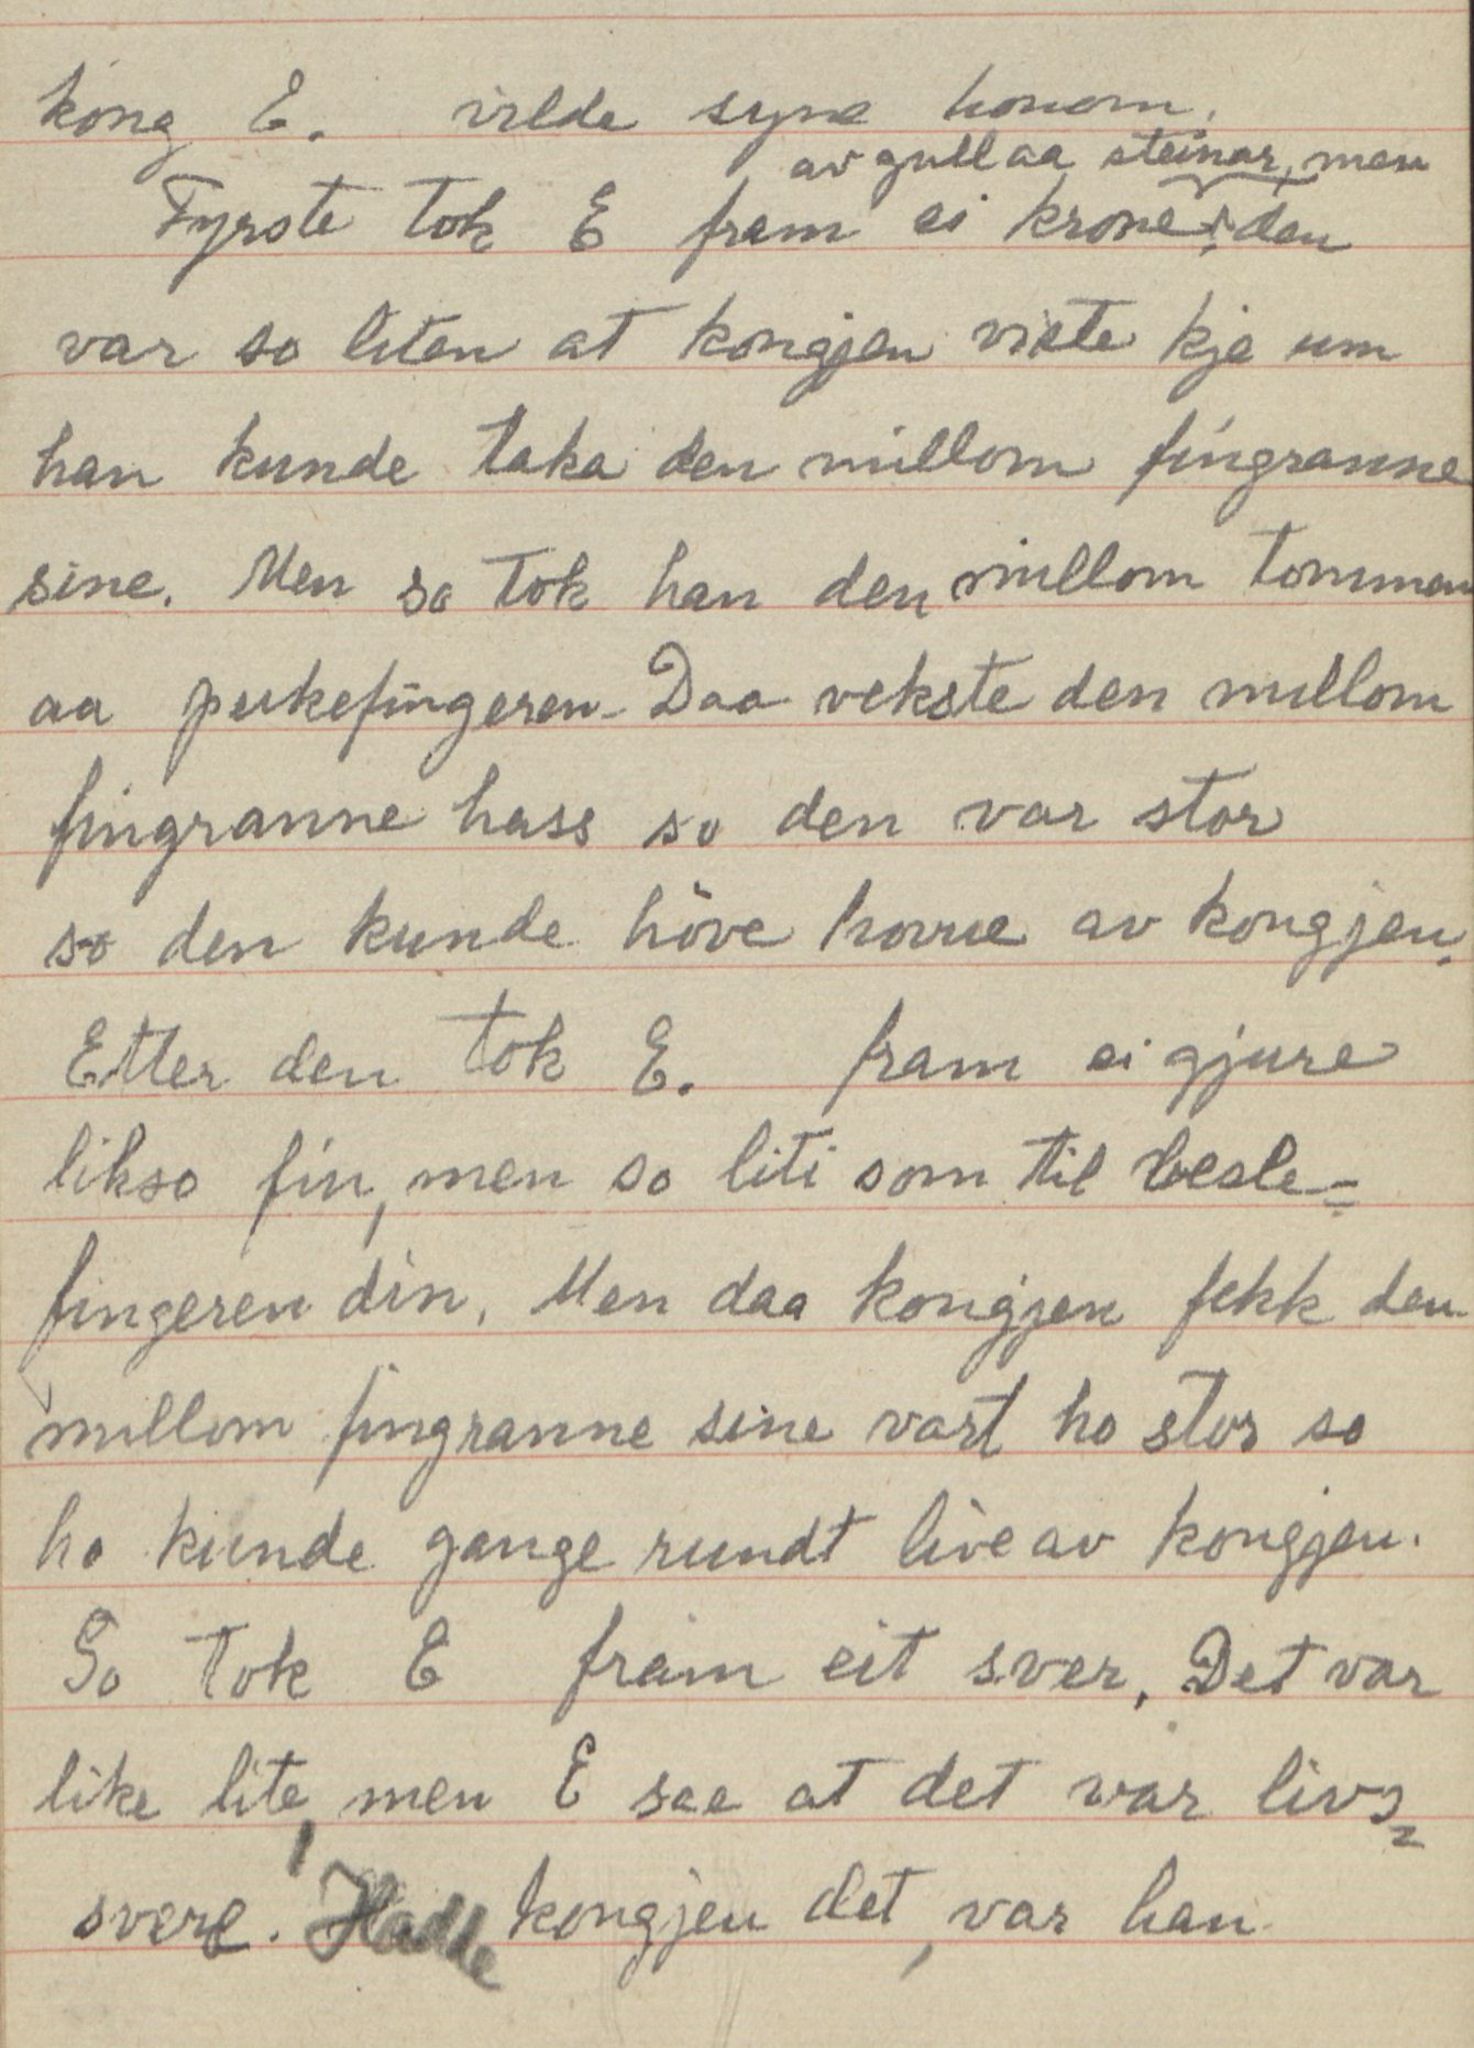 kong E. vilde syne honom.
av gull aa steinar, men
Fyrste tok E fram ei krone; den
var so liten at kongjen viste kje um
han kunde taka den millom fingranne
sine. Men so tok han den millom tommen
aa peikefingeren. Daa vekste den millom
fingranne hass so den var stor
so den kunde höve hovue av kongjen.
Etter den tok E. fram ei gjure
likso fin, men so liti som til vesle-
fingeren din. Men daa kongjen fekk den
millom fingranne sine vart ho stor so
ho kunde gange rundt live av kongjen.
So tok E fram eit sver. Det var
like lite, men E sae at det var livs-
svere. Hadde kongjen det, var han